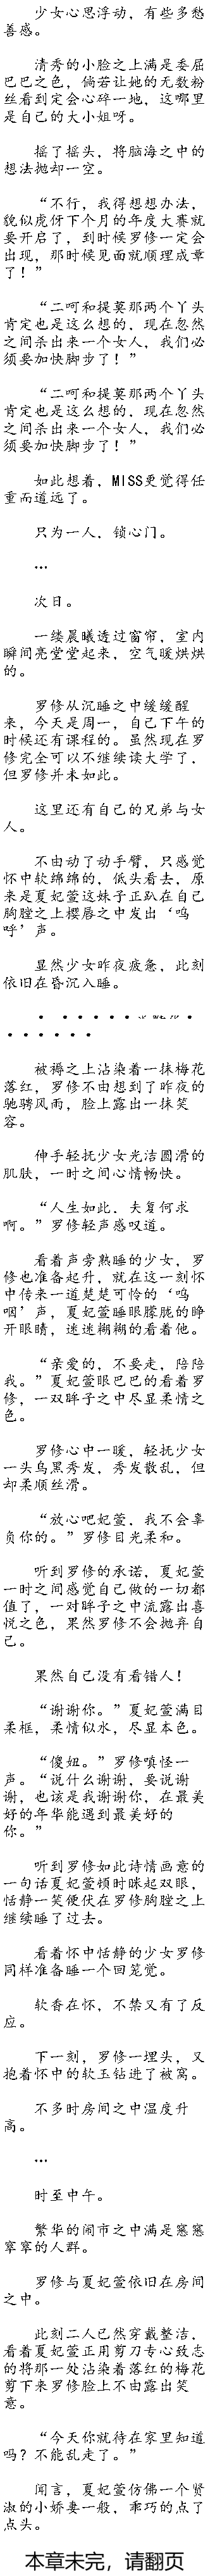 少女心思浮动，有些多愁
善感。
清秀的小脸之上满是委屈
巴巴之色，倘若让她的无数粉
丝看到定会心碎一地，这哪里
是自己的大小姐呀。
摇了摇头，将脑海之中的
想法抛却一空。
“不行，我得想想办法，
貌似虎伢下个月的年度大赛就
要开启了，到时候罗修一定会
出现，那时候见面就顺理成章
了！”
“二呵和提莫那两个丫头
肯定也是这么想的，现在忽然
之间杀出来一个女人，我们必
须要加快脚步了！”
“二呵和提莫那两个丫头
肯定也是这么想的，现在忽然
之间杀出来一个女人，我们必
须要加快脚步了！”
如此想着，MISS更觉得任
重而道远了。
只为一人，锁心门。
…
次日。
一缕晨曦透过窗帘，室内
瞬间亮堂堂起来，空气暖烘烘
的。
罗修从沉睡之中缓缓醒
来，今天是周一，自己下午的
时候还有课程的。虽然现在罗
修完全可以不继续读大学了，
但罗修并未如此。
这里还有自己的兄弟与女
人。
不由动了动手臂，只感觉
怀中软绵绵的，低头看去，原
来是夏妃萱这妹子正趴在自己
胸膛之上樱唇之中发出‘呜
呼’声。
显然少女昨夜疲惫，此刻
依旧在昏沉入睡。
被褥之上沾染着一抹梅花
落红，罗修不由想到了昨夜的
驰骋风雨，脸上露出一抹笑
容。
伸手轻抚少女光洁圆滑的
肌肤，一时之间心情畅快。
“人生如此．夫复何求
啊。”罗修轻声感叹道。
看着声旁熟睡的少女，罗
修也准备起升，就在这一刻怀
中传来一道楚楚可怜的‘呜
咽’声，夏妃萱睡眼朦胧的睁
开眼睛，迷迷糊糊的看着他。
“亲爱的，不要走，陪陪
我。”夏妃萱眼巴巴的看着罗
修，一双眸子之中尽显柔情之
色。
罗修心中一暖，轻抚少女
一头乌黑秀发，秀发散乱，但
却柔顺丝滑。
“放心吧妃萱，我不会辜
负你的。”罗修目光柔和。
听到罗修的承诺，夏妃萱
一时之间感觉自己做的一切都
值了，一对眸子之中流露出喜
悦之色，果然罗修不会抛弃自
己。
果然自己没有看错人！
“谢谢你。”夏妃萱满目
柔框，柔情似水，尽显本色。
“傻妞。”罗修嗔怪一
声。“说什么谢谢，要说谢
谢，也该是我谢谢你，在最美
好的年华能遇到最美好的
你。”
听到罗修如此诗情画意的
一句话夏妃萱顿时眯起双眼，
恬静一笑便伏在罗修胸膛之上
继续睡了过去。
看着怀中恬静的少女罗修
同样准备睡一个回笼觉。
软香在怀，不禁又有了反
应。
下一刻，罗修一埋头，又
抱着怀中的软玉钻进了被窝。
不多时房间之中温度升
高。
…
时至中午。
繁华的闹市之中满是窸窸
窣窣的人群。
罗修与夏妃萱依旧在房间
之中。
此刻二人已然穿戴整洁，
看着夏妃萱正用剪刀专心致志
的将那一处沾染着落红的梅花
剪下来罗修脸上不由露出笑
意。
“今天你就待在家里知道
吗？不能乱走了。”
闻言，夏妃萱仿佛一个贤
淑的小娇妻一般，乖巧的点了
点头。
本章未完，请翻页